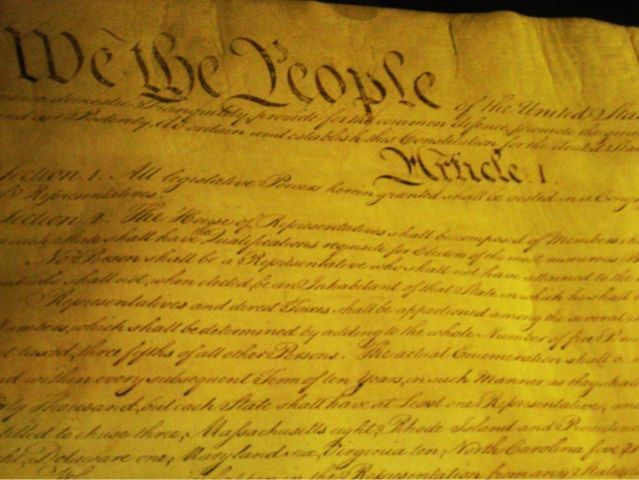 We the People of the United Sta
domestic Tranquility, provide for the common defence, promote the gen
and our Posterity, do ordain and establish this Constitution for the United Sta
Article. I.
Section. 1. All legislative Powers herein granted shall be vested in a Cong
of Representatives.
Section. 2. The House of Representatives shall be composed of Members
in each State shall have the Qualifications requisite for Electors of the most numerous
No Person shall be a Representative who shall not have attained to the
and who shall not, when elected, be an Inhabitant of that State in which he shall
Representatives and direct Taxes shall be apportioned among the several
Numbers, which shall be determined by adding to the whole Number of free Pers
not taxed, three fifths of all other Persons. The actual Enumeration shall be
and within every subsequent Term of ten Years, in such Manner as they sha
thirty Thousand, but each State shall have at Least one Representative; an
entitled to chuse three, Massachusetts eight, Rhode Island and Providen
eight, Delaware one, Maryland six, Virginia ten, North Carolina five,
happen in the Representation from any State